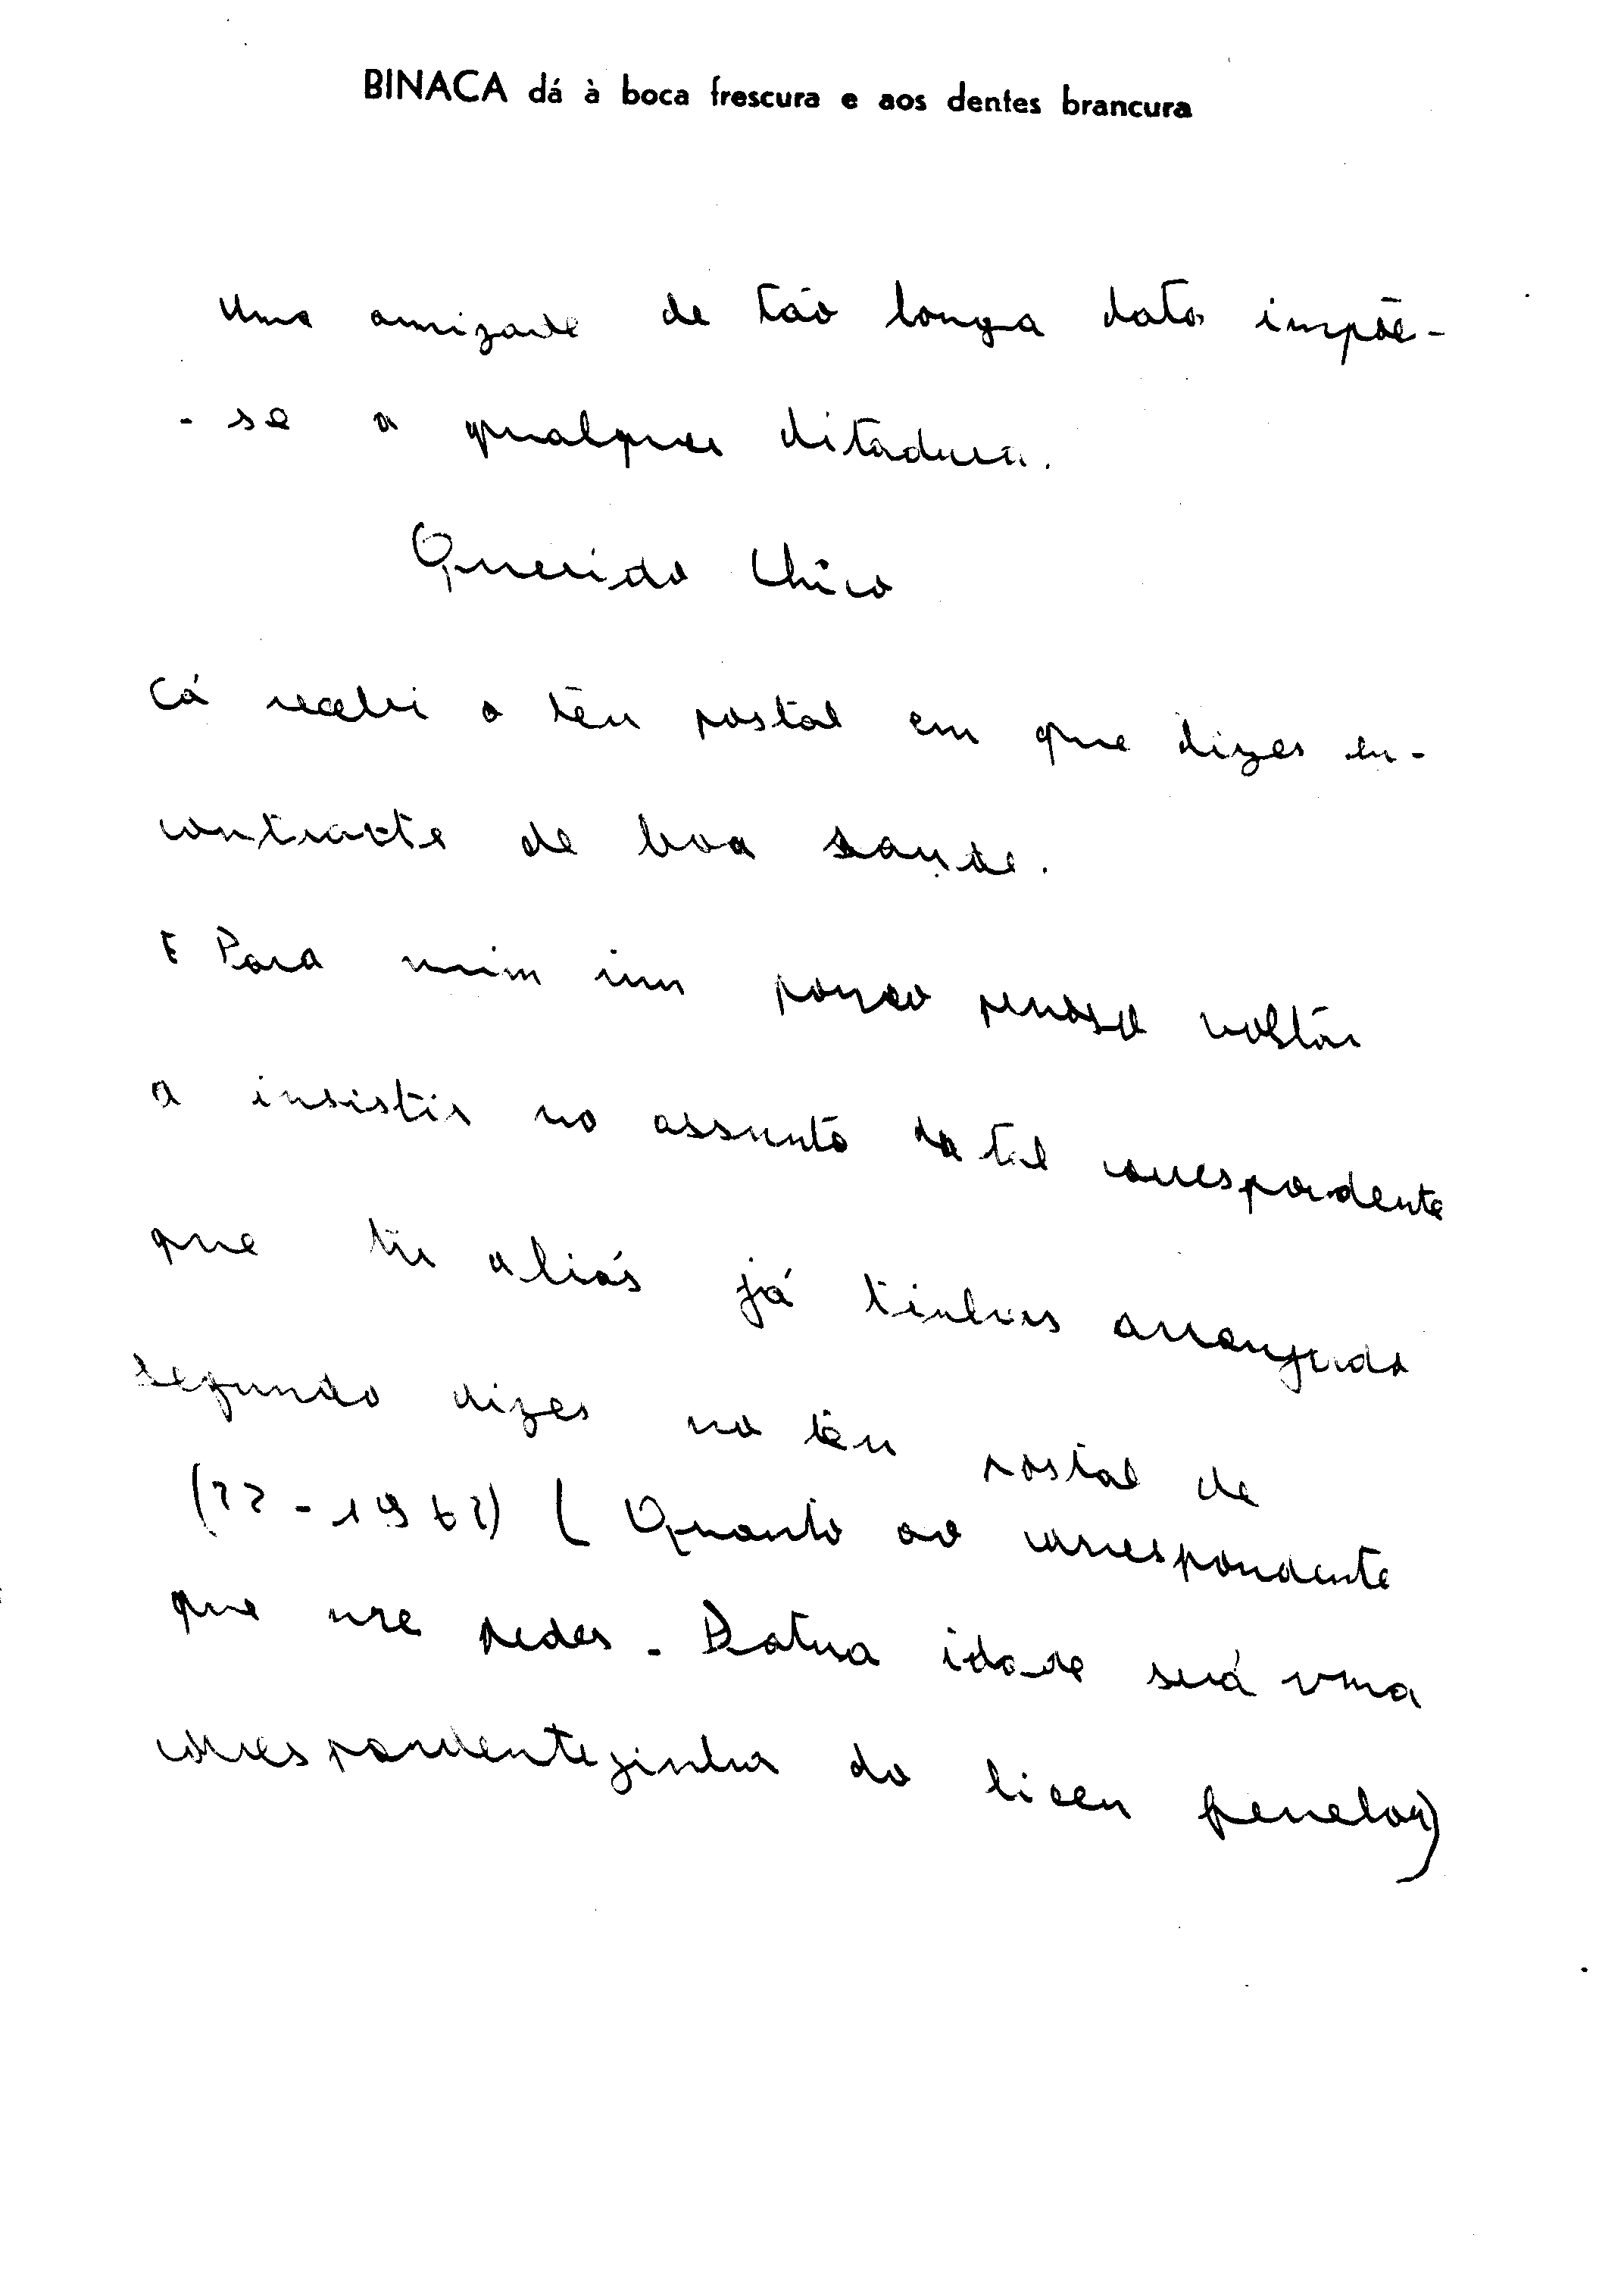 BINACA dá à boca frescura e aos dentes brancura
Uma amizade de tão longa data impõe-
- se a qualquer ditadura.
Querido Chico
Cá recebi o têu postal em que dizes en-
contraste de boa saude.
E Para mim um pouco penoso voltar
a insistir no assunto da tal correspondente
que tu aliás já tinhas arranjado
segundo dizes no têu postal de
(??-196?) ( Quanto ao correspondente
que me pedes - Datua idade será uma
correspondentezinha do liceu